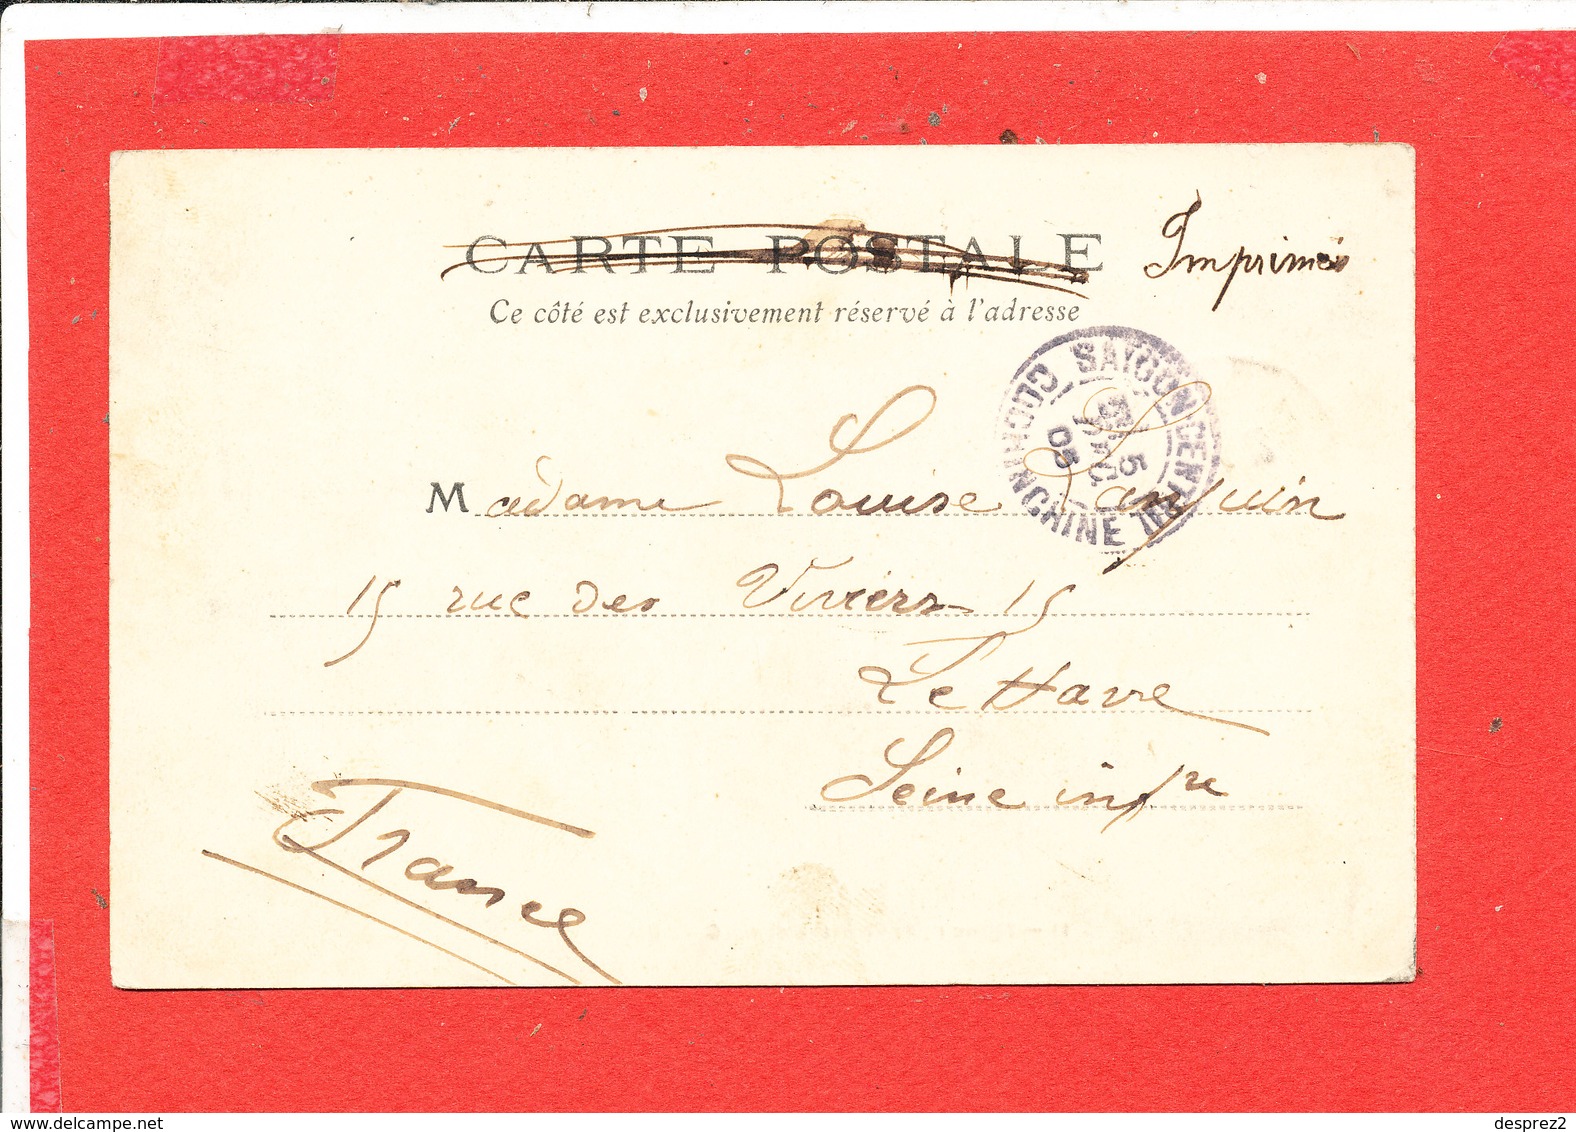 CARTE POSTALE
Imprimés
Ce côté est exclusivement réservé à l'adresse
SAIGON CENTRAL
5
05
COCHINCHINE
Madame Louise
15 rue des Viviers 15
Le Havre
Seine infre
France
delcampe.net
desprez2